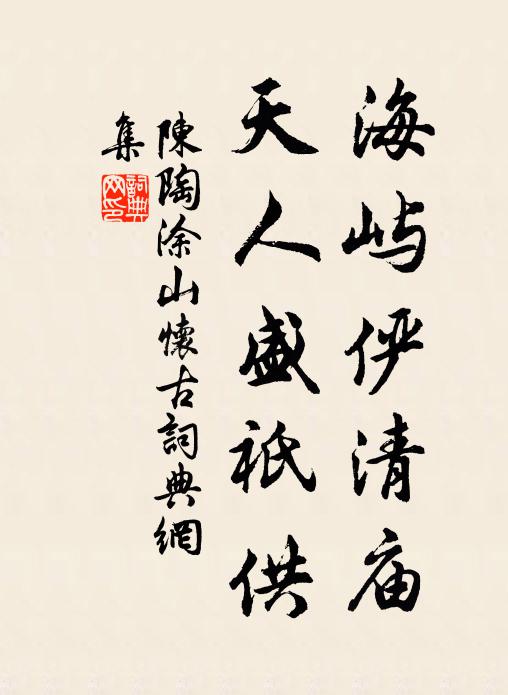 海屿俨清庙
天人盛祗供
陳陶涂山懷古詞典網
集
詞典
网印